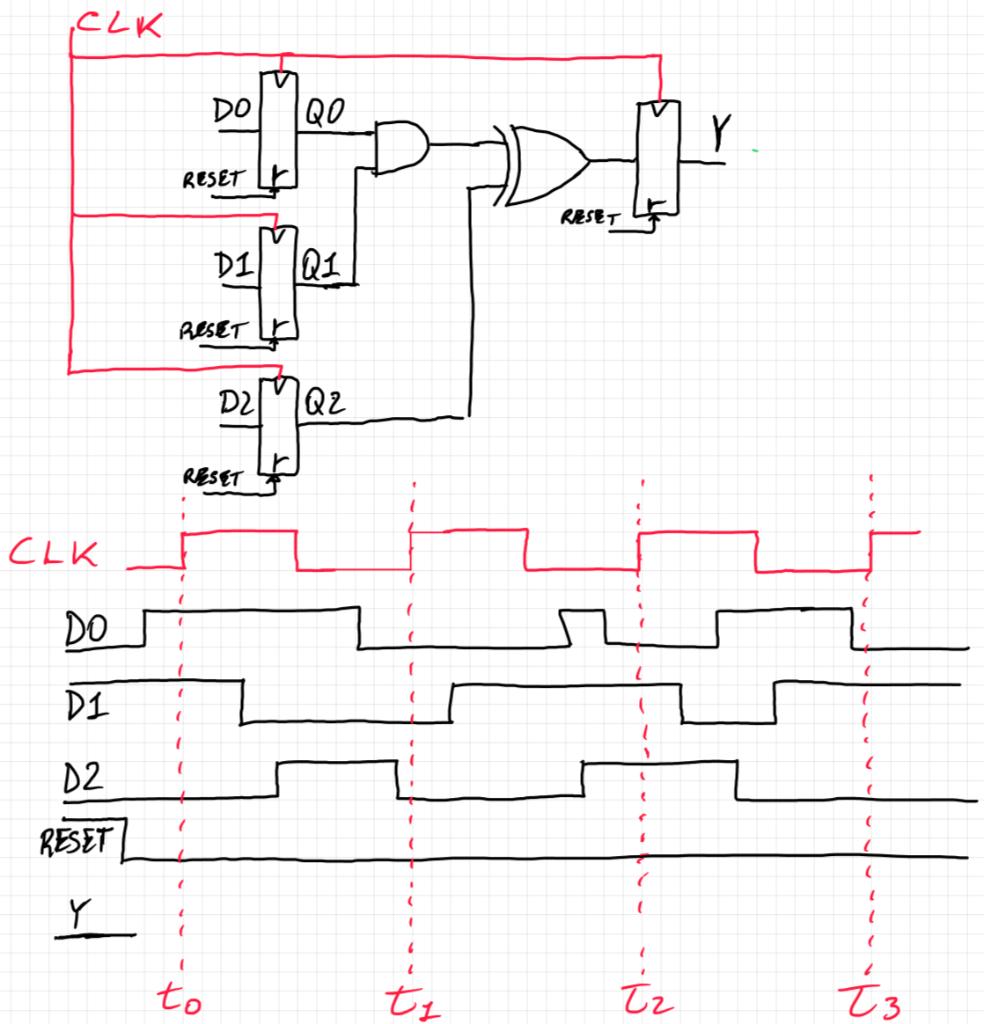 CLK
D0 Q0
RESET r
Y
D1 Q1
RESET r
RESET r
D2 Q2
RESET r
CLK
D0
D1
D2
RESET
Y
t0 t1 τ2 τ3